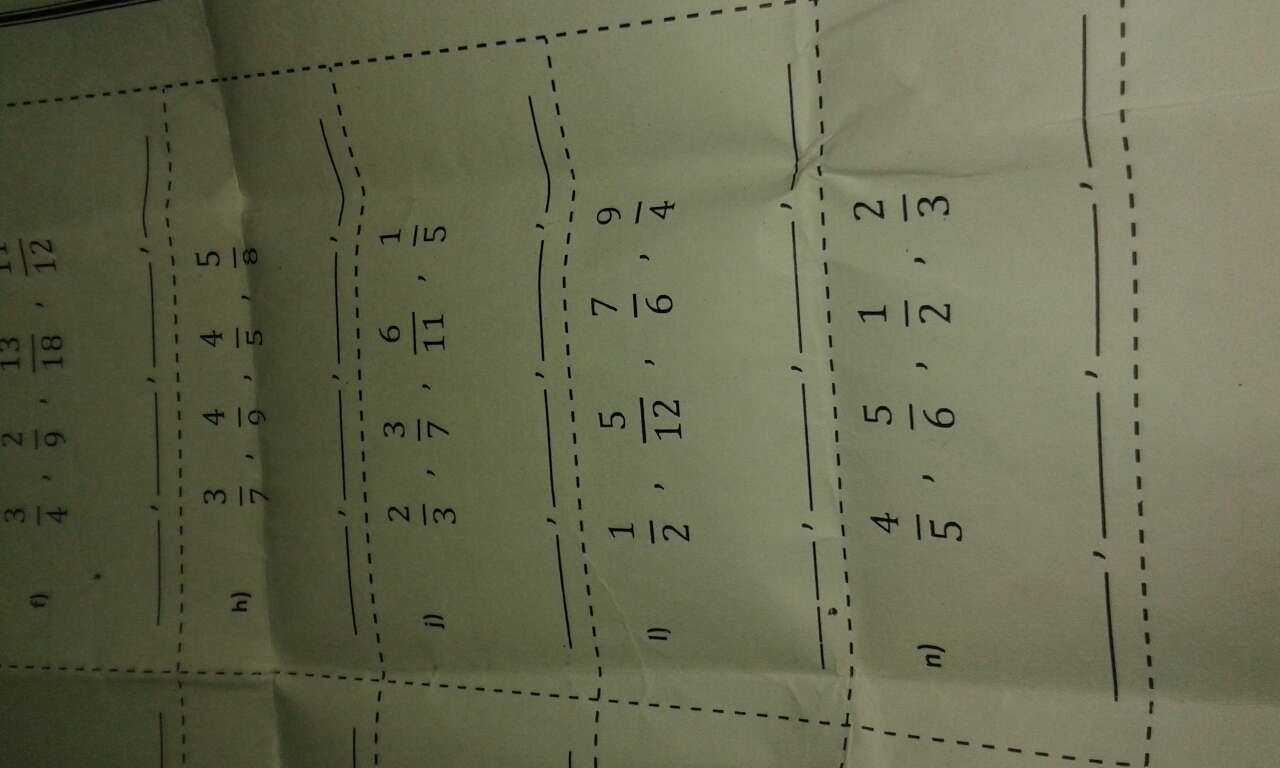 f) 3/4 , 2/9 , 13/18 , 11/12
____, ____, ____, ____
h) 3/7 , 4/9 , 4/5 , 5/8
____, ____, ____, ____
j) 2/3 , 3/7 , 6/11 , 1/5
____, ____, ____, ____
l) 1/2 , 5/12 , 7/6 , 9/4
____, ____, ____, ____
n) 4/5 , 5/6 , 1/2 , 2/3
____, ____, ____, ____